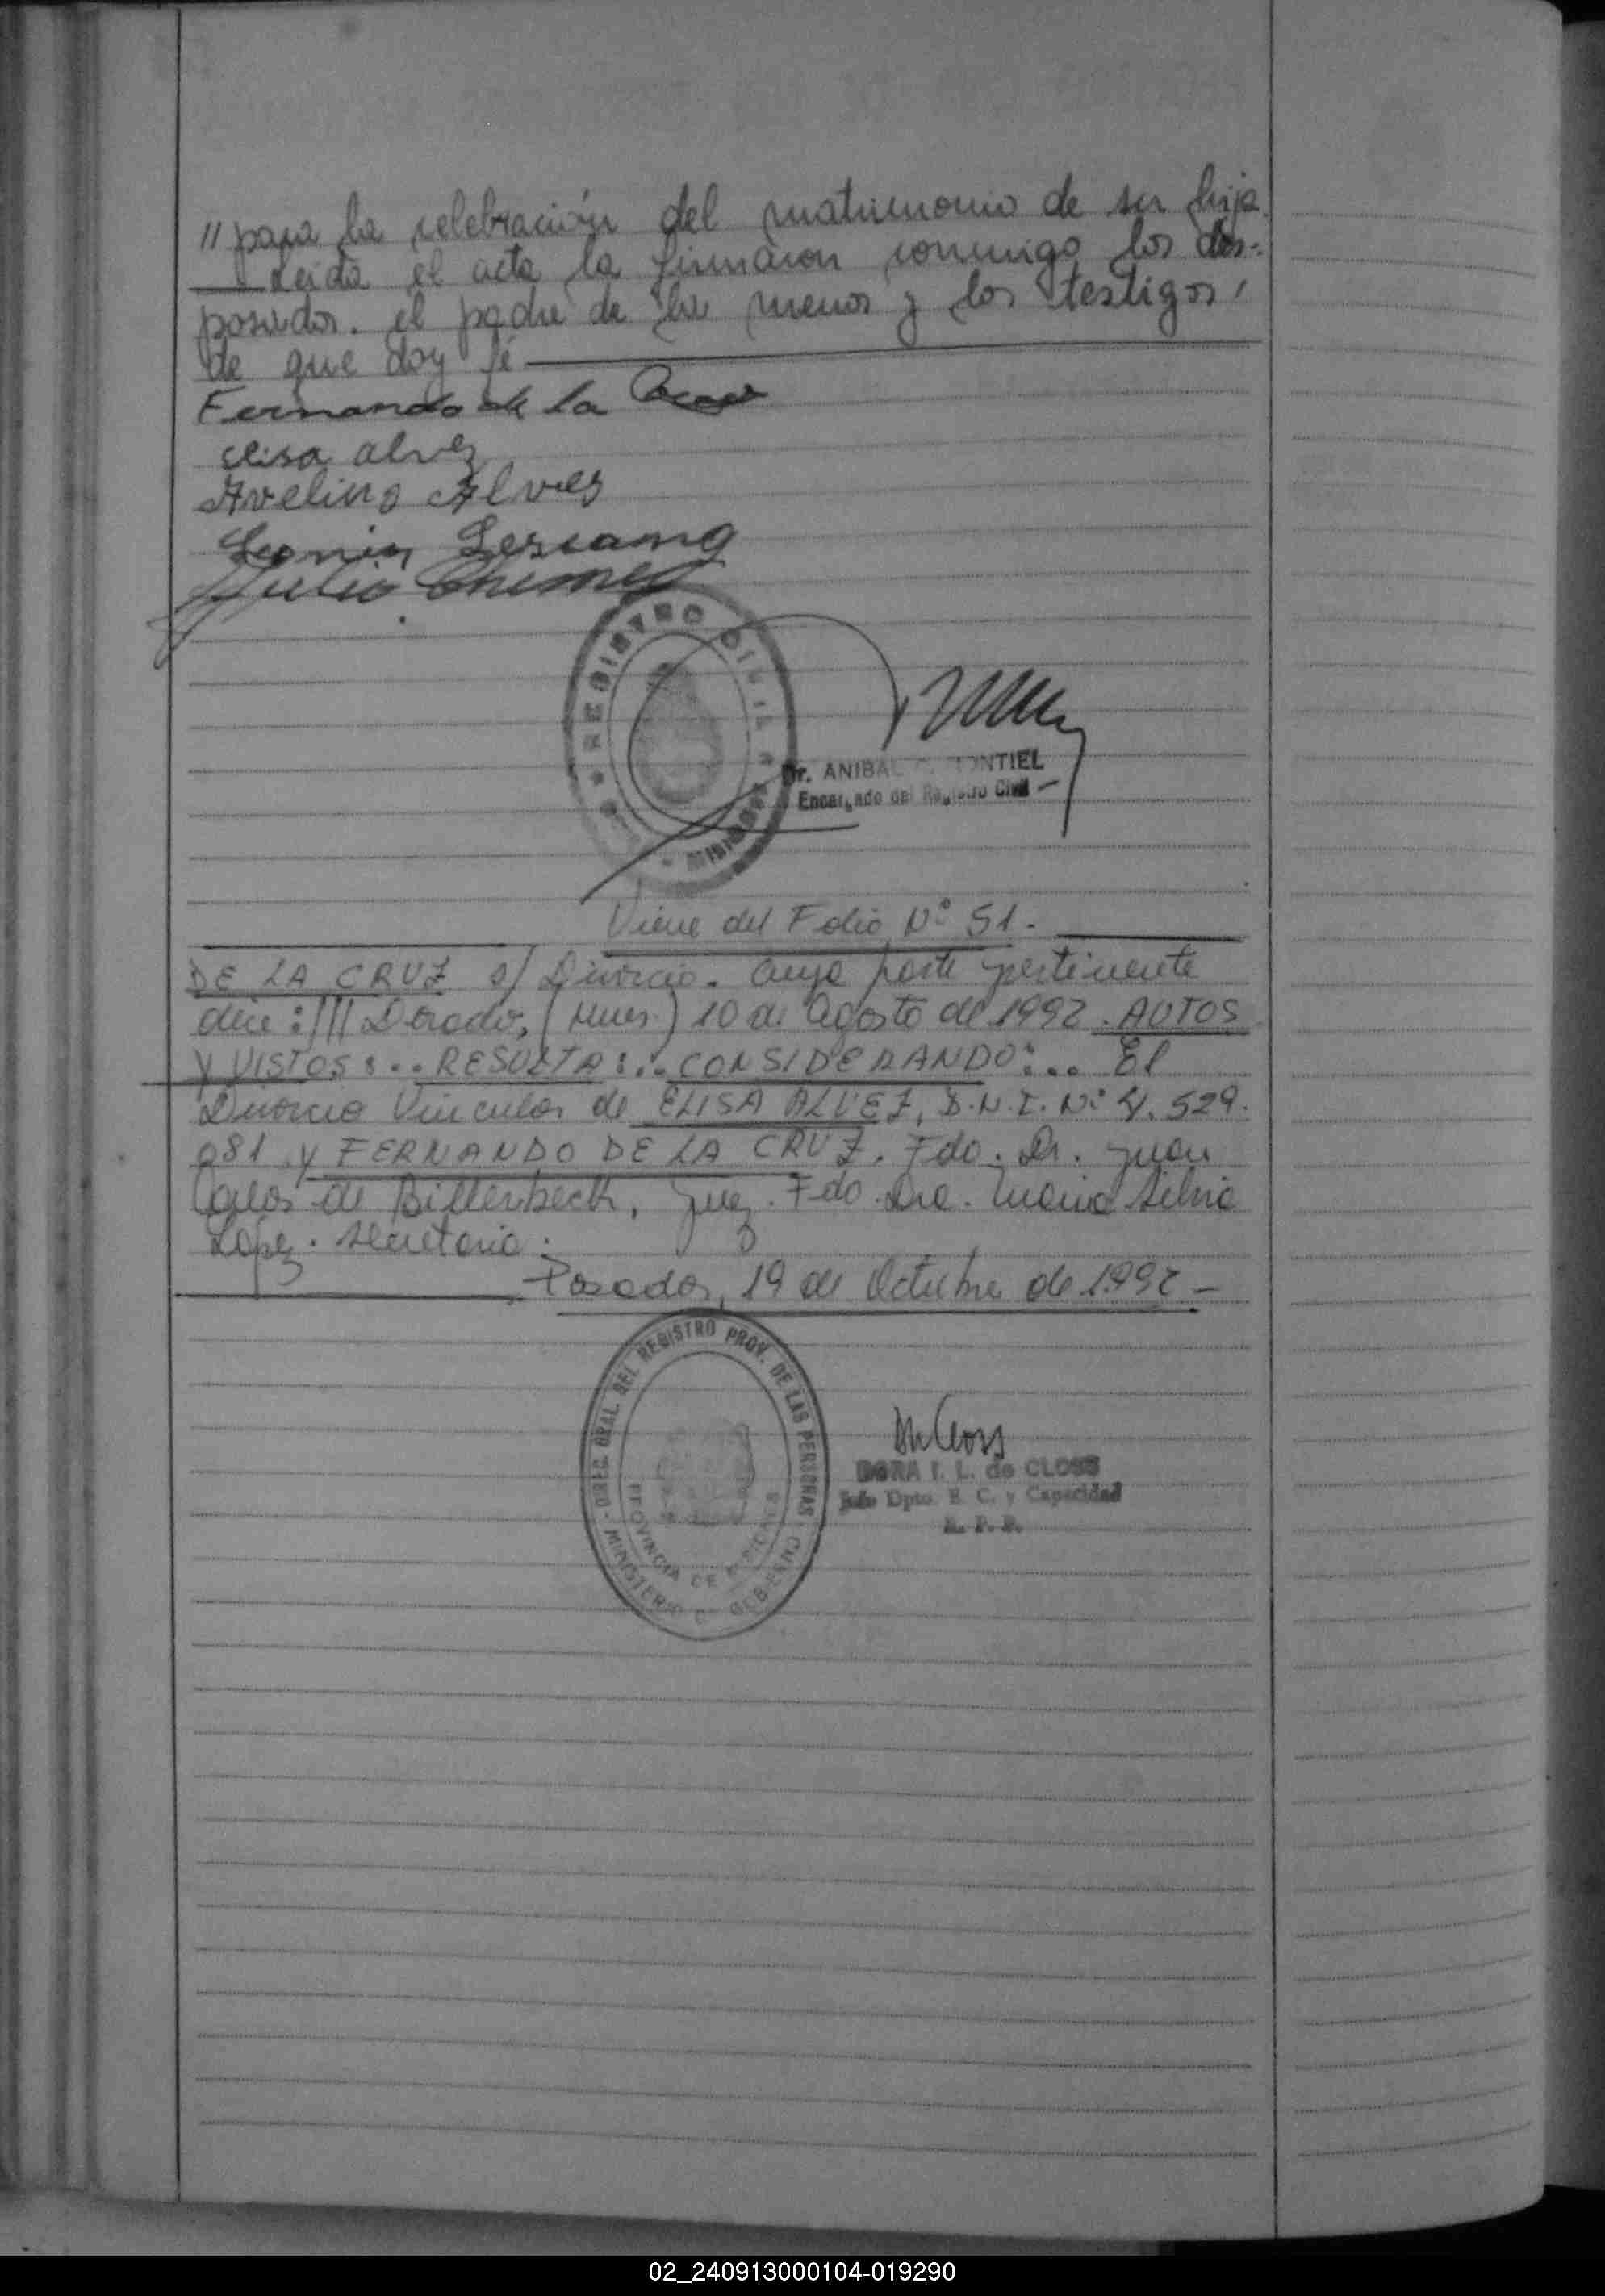 " para la celebración del matrimonio de su hija.
Leída el acta la firmaron conmigo los des-
posados. el padre de la menor y los testigos,
de que doy fé
Fernando de la
elisa alvez
Avelino Alves
Lescano
Julio
REGISTRO CIVIL
MISIONES
Dr. ANIBAL MONTIEL
Encargado del Registro Civil
Viene del Folio N° 51.-
DE LA CRUZ s/ Divorcio. Cuya parte pertinente
dice: /// Dorado, (Mnes.) 10 de Agosto de 1992. AUTOS
Y VISTOS: .. RESULTA: .. CONSIDERANDO: ... El
Divorcio Vincular de ELISA ALVEZ, D.N.I. N° 4.529.
081 y FERNANDO DE LA CRUZ. Fdo. Dr. Juan
Carlos de Billerbeck, Juez. Fdo. Dra. María Silvia
López. Secretaria.
Posadas, 19 de Octubre de 1.992 -
DIREC. GRAL. DEL REGISTRO PROV. DE LAS PERSONAS
PROVINCIA DE MISIONES
MINISTERIO DE GOBIERNO
DORA I. L. de CLOSS
Jefe Dpto. E. C. y Capacidad
R. P. P.
02_240913000104-019290